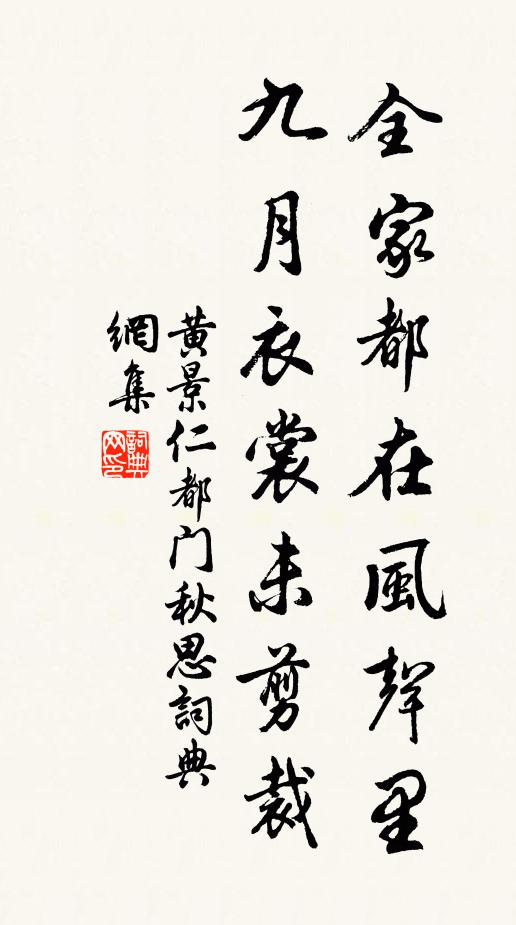 全家都在風聲里
九月衣裳未剪裁
黃景仁都门秋思詞典
網集
詞典网印